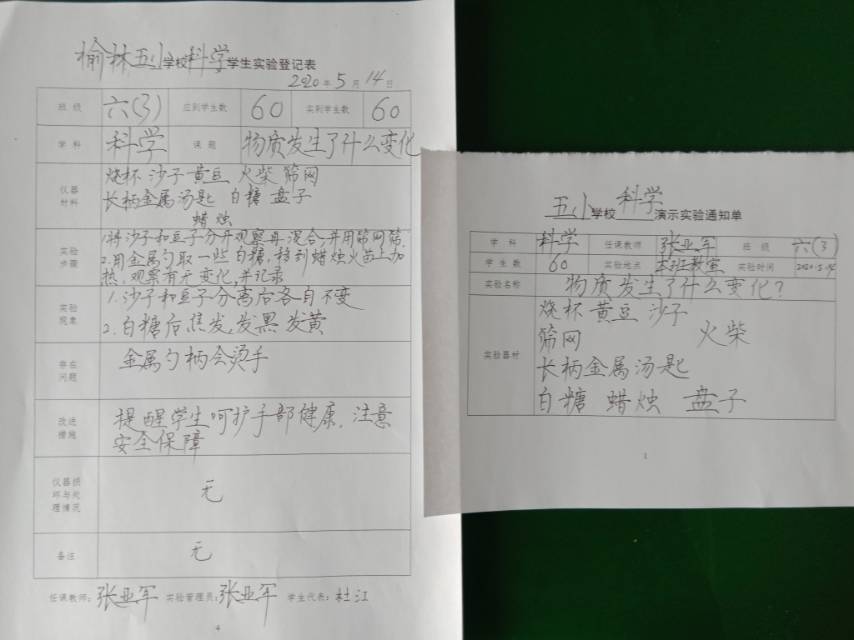 榆林五小学校科学学生实验登记表
2020年5月14日
班级 六(3) 应到学生数 60 实到学生数 60
学科 科学 课题 物质发生了什么变化
仪器材料 烧杯 沙子 黄豆 火柴 筛网
长柄金属汤匙 白糖 盘子
蜡烛
实验步骤 1.将沙子和豆子分开观察再混合,并用筛网筛.
2.用金属勺取一些白糖,移到蜡烛火苗上加
热,观察有无变化,并记录
实验现象 1.沙子和豆子分离后各自不变
2.白糖后焦发,发黑 发黄
存在问题 金属勺柄会烫手
改进措施 提醒学生呵护手部健康,注意
安全保障
仪器损坏与处理情况 无
备注 无
任课教师:张亚军 实验管理员:张亚军 学生代表:杜江
4
五小学校科学演示实验通知单
学科 科学 任课教师 张亚军 班级 六(3)
学生数 60 实验地点 本班教室 实验时间 2020.5.14
实验名称 物质发生了什么变化?
实验器材 烧杯 黄豆 沙子
筛网 火柴
长柄金属汤匙
白糖 蜡烛 盘子
1